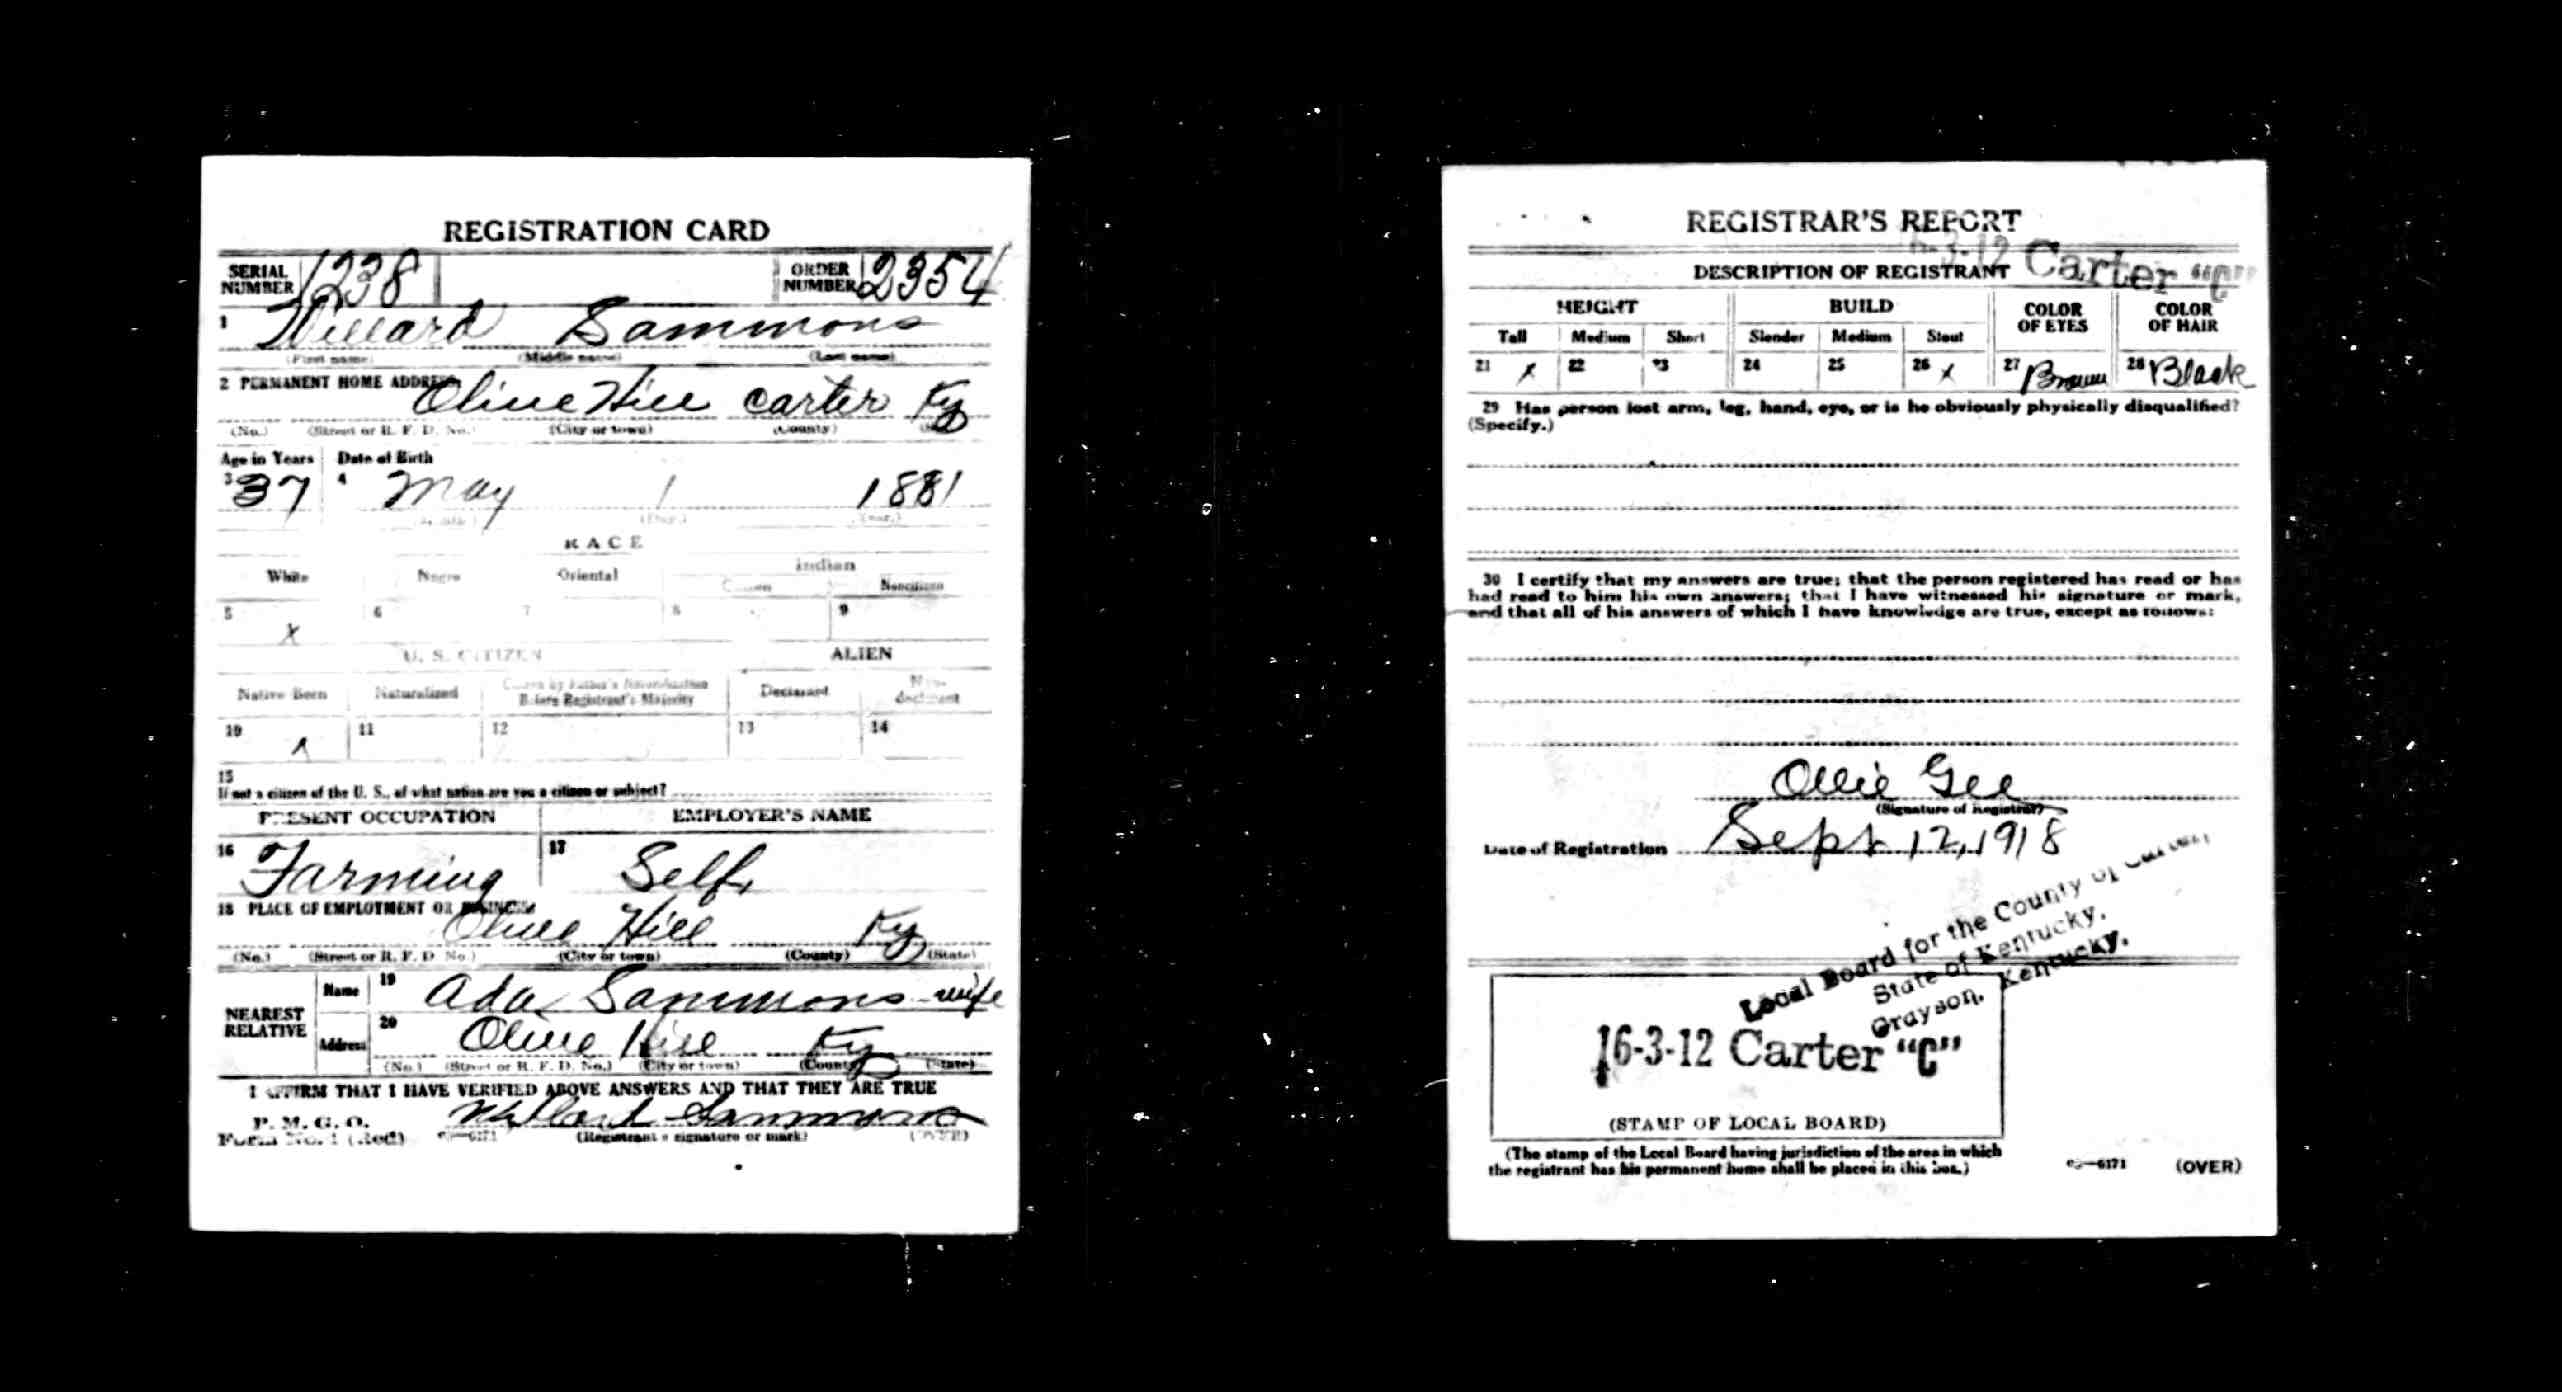 REGISTRATION CARD
SERIAL NUMBER 1238 ORDER NUMBER 2354
1 Willard Sammons
(First name) (Middle name) (Last name)
2 PERMANENT HOME ADDRESS Olive Hill Carter Ky
(No.) (Street or R. F. D. No.) (City or town) (County)
Age in Years Date of Birth
3 37 4 May 1 1881
(Day) (Year)
RACE
White Negro Oriental Indian
Citizen Noncitizen
5 x 6 7 8 9
U. S. CITIZEN ALIEN
Native Born Naturalized Citizen by Father's Naturalization Before Registrant's Majority Declarant Non-declarant
10 11 12 13 14
15
If not a citizen of the U. S., of what nation are you a citizen or subject?
PRESENT OCCUPATION EMPLOYER'S NAME
16 Farming 17 Self
18 PLACE OF EMPLOYMENT OR BUSINESS Olive Hill Ky
(No.) (Street or R. F. D. No.) (City or town) (County) (State)
NEAREST RELATIVE Name 19 Ada Sammons - wife
Address 20 Olive Hill Ky
(No.) (Street or R. F. D. No.) (City or town) (County) (State)
I AFFIRM THAT I HAVE VERIFIED ABOVE ANSWERS AND THAT THEY ARE TRUE
P. M. G. O. Willard Sammons
Form No. 1 (Red) (Registrant's signature or mark) (OVER)
REGISTRAR'S REPORT
-3-12 Carter "C"
DESCRIPTION OF REGISTRANT
HEIGHT BUILD COLOR OF EYES COLOR OF HAIR
Tall Medium Short Slender Medium Stout
21 x 22 23 24 25 26 x 27 Brown 28 Black
29 Has person lost arm, leg, hand, eye, or is he obviously physically disqualified?
(Specify.)
30 I certify that my answers are true; that the person registered has read or has
had read to him his own answers; that I have witnessed his signature or mark,
and that all of his answers of which I have knowledge are true, except as follows:
Ollie Gee
(Signature of Registrar)
Date of Registration Sept 12, 1918
Local Board for the County of Carter,
State of Kentucky,
Grayson, Kentucky.
16-3-12 Carter "C"
(STAMP OF LOCAL BOARD)
(The stamp of the Local Board having jurisdiction of the area in which
the registrant has his permanent home shall be placed in this box.)
03—6171 (OVER)